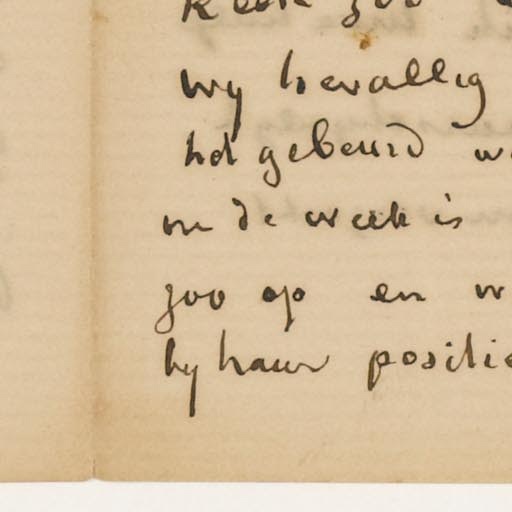 keek zoo
wy bevallig
het gebeurd
om de week is
zoo op en
by haar positie